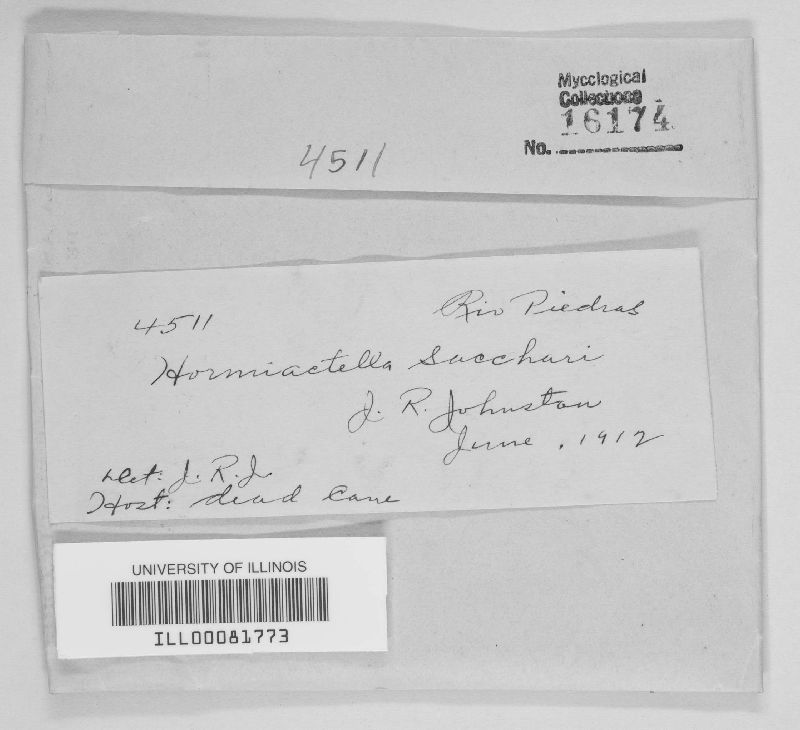 Mycological
Collections
16174
No.
4511
4511 Rio Piedras
Hormiactella Sacchari
J. R. Johnston
June, 1912
Det: J. R. J.
Host: dead Cane
UNIVERSITY OF ILLINOIS
ILL00081773